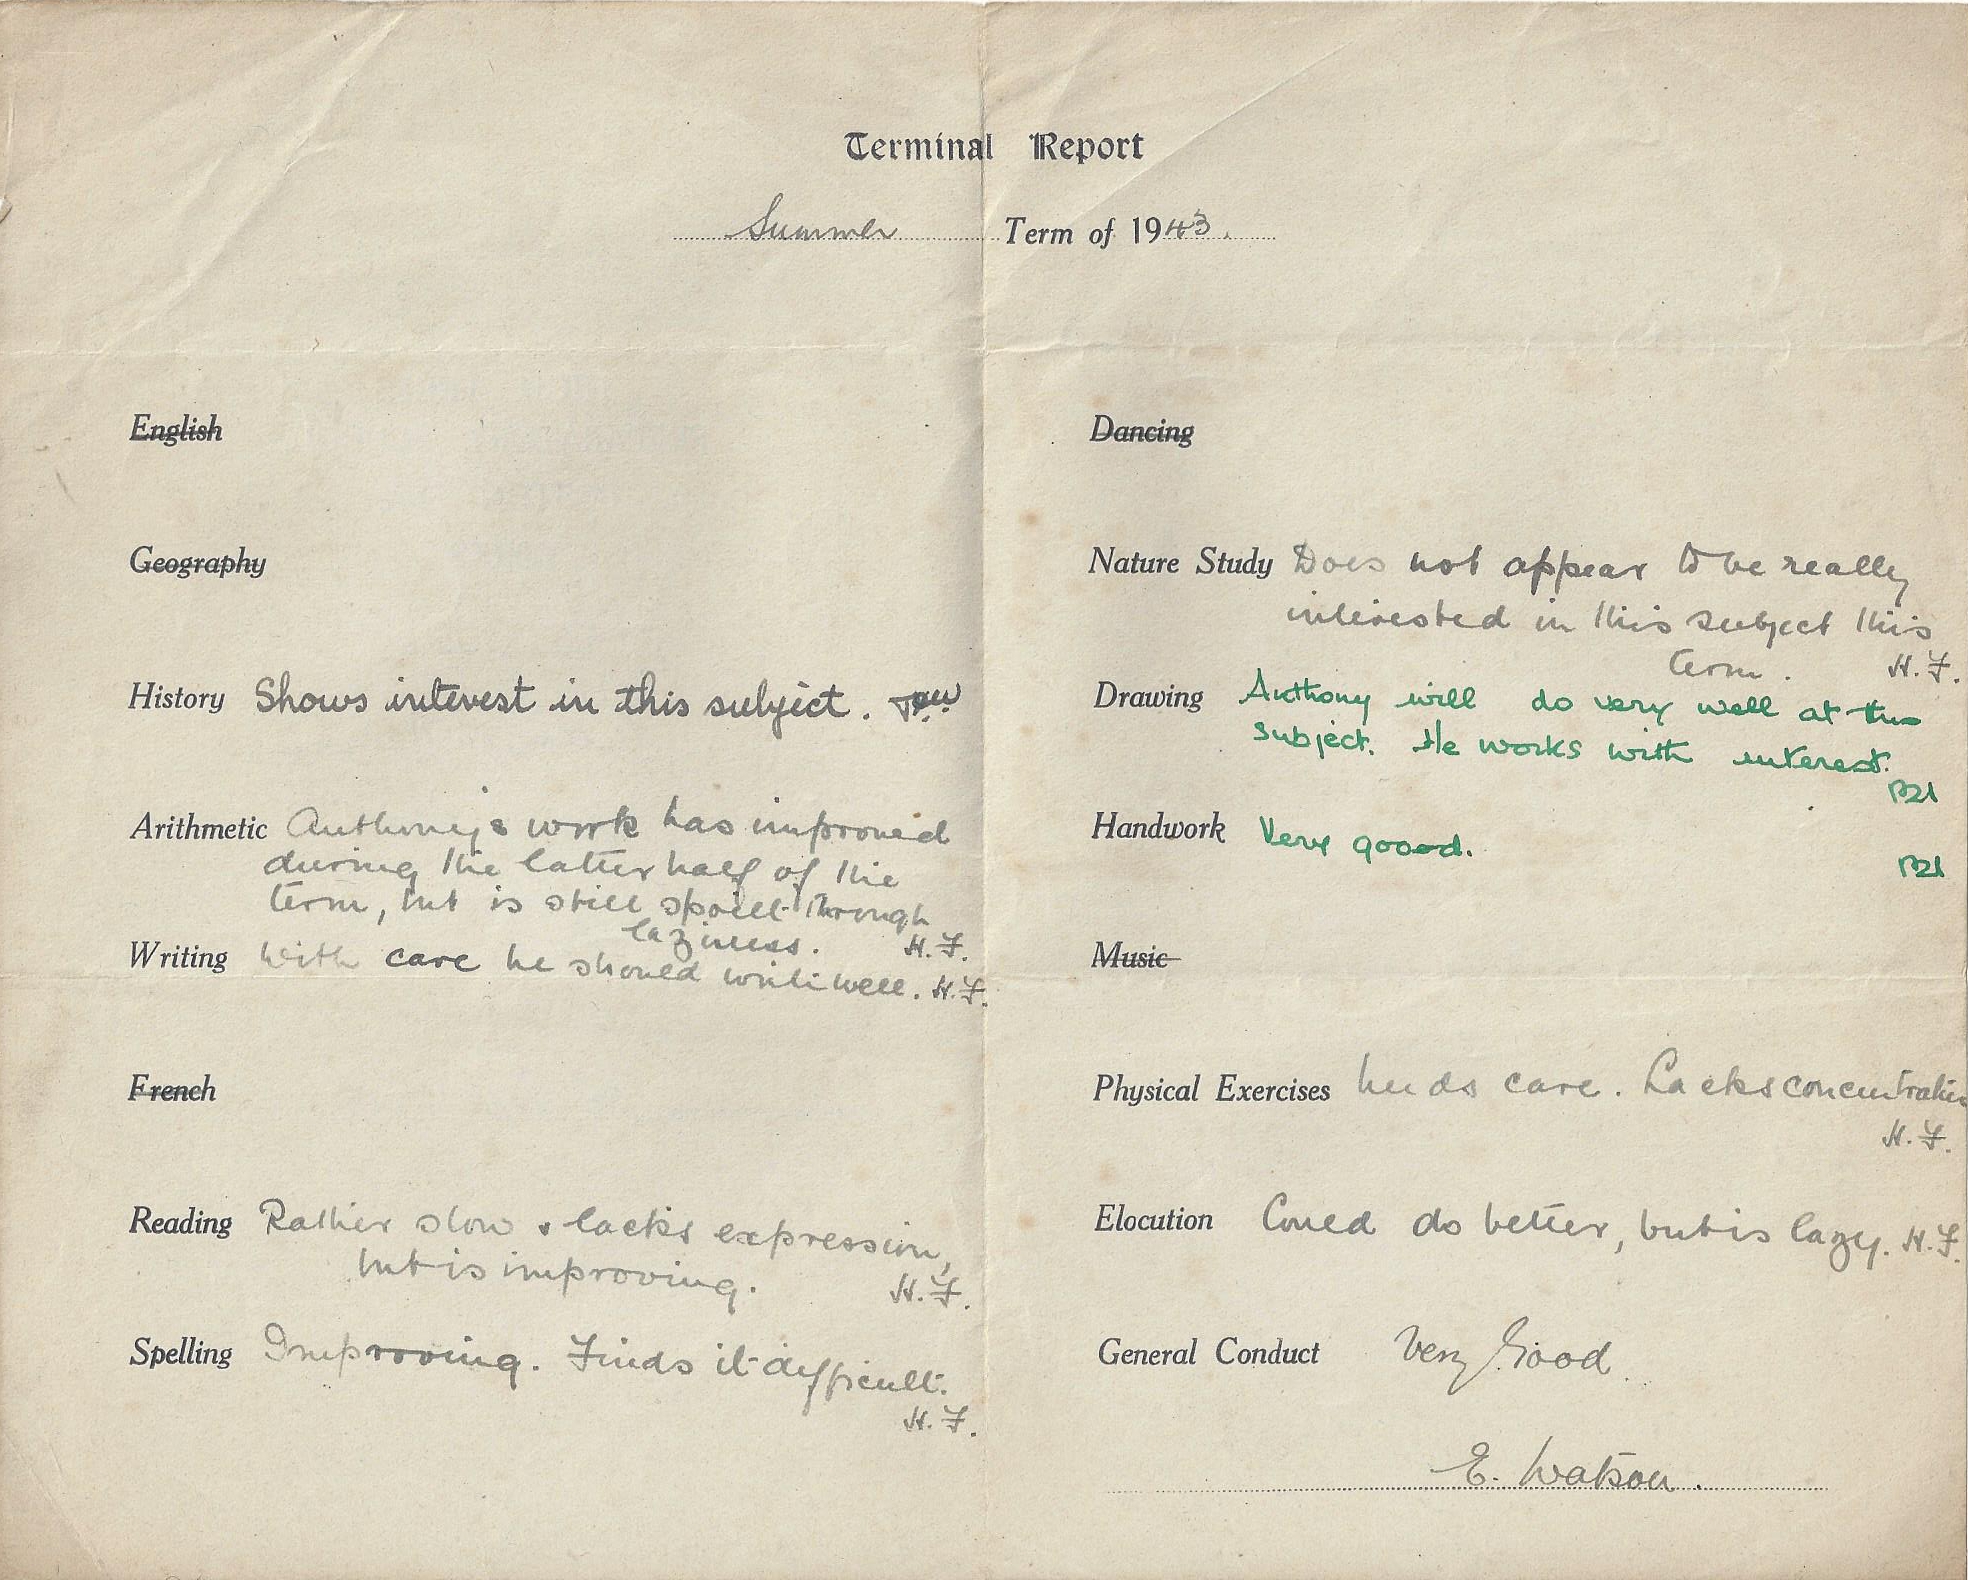 Terminal Report
Summer Term of 1943.
English
Geography
History Shows interest in this subject.
Arithmetic Anthony's work has improved
during the latter half of the
term, but is still spoilt through
laziness. H.F.
Writing With care he should write well. H.F.
French
Reading Rather slow & lacks expression,
but is improving. H.F.
Spelling Improving. Finds it difficult.
H.F.
Dancing
Nature Study Does not appear to be really
interested in this subject this
term. H.F.
Drawing Anthony will do very well at this
subject. He works with interest.
Handwork Very goood.
Music
Physical Exercises Needs care. Lacks concentration
H.F.
Elocution Could do better, but is lazy. H.F.
General Conduct Very Good.
E. Watson.